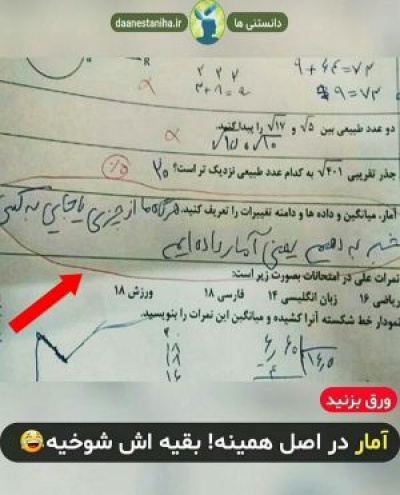 دانستنی ها
daanestaniha.ir
R
۹ + ۶۴ = ۷۳
۳ + ۶ = ۹
۹ = ۷۳
دو عدد طبیعی بین √۵ و √۱۷ را پیدا کنید.
جذر تقریبی √۴۰۱ به کدام عدد طبیعی نزدیک تر است؟ ۲۰
آمار، میانگین و داده ها و دامنه تغییرات را تعریف کنید. هرگاه ما از چیزی یا جایی به کسی
خبر بدهیم یعنی آمار داده ایم
نمرات علی در امتحانات بصورت زیر است:
ریاضی ۱۶ زبان انگلیسی ۱۴ فارسی ۱۸ ورزش ۱۸
نمودار خط شکسته آنرا کشیده و میانگین این نمرات را بنویسید.
۲۰
۱۸
۱۶
ورق بزنید
آمار در اصل همینه! بقیه اش شوخیه😂